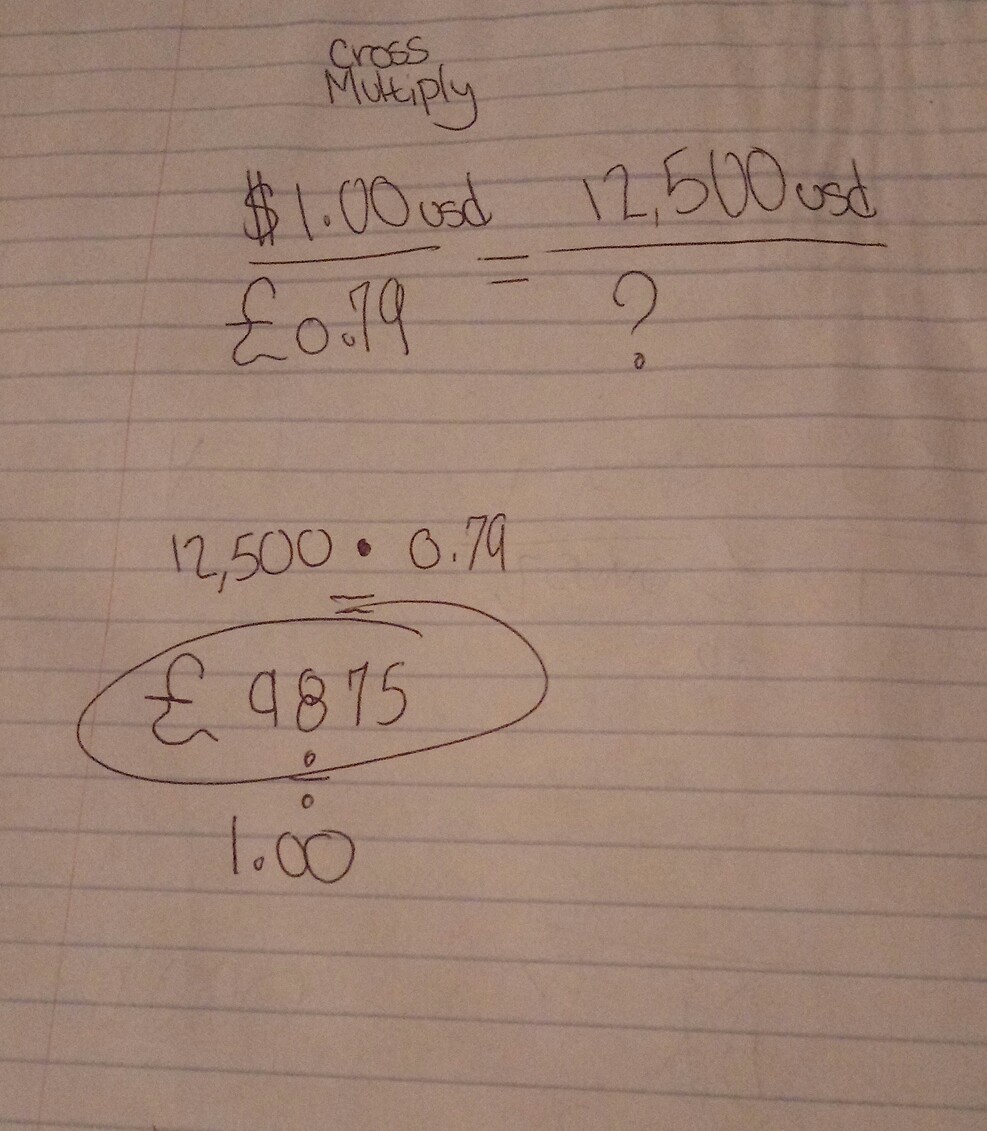 Cross
Multiply
$1.00 usd = 12,500 usd
£0.79 ?
12,500 • 0.79
=
£ 9875
÷
1.00